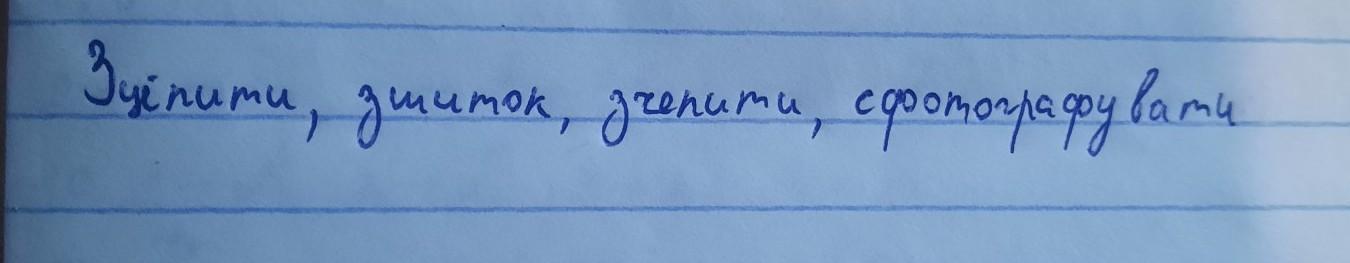 Зціпити, зшиток, зчепити, сфотографувати